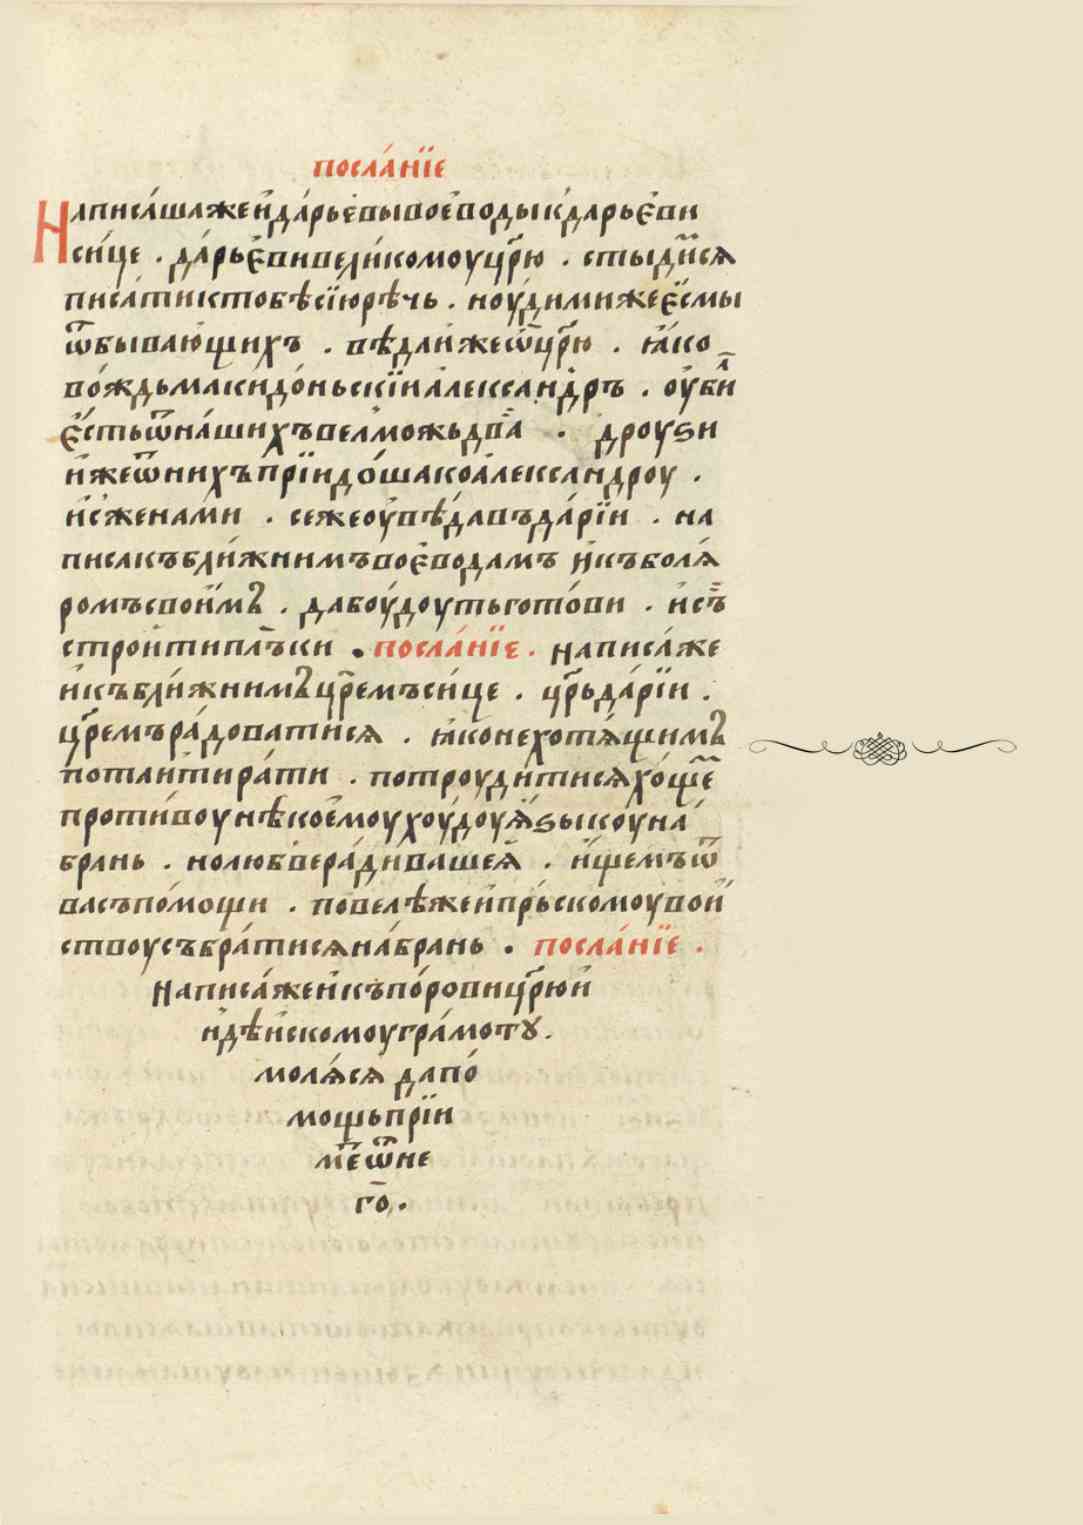 посла́нїе
Написа́шажеи҆да́рьевывоево́дык̾дарьеви
си́це . да́рьевивели́комоуцр҃ю . стыди́мсѧ
писа́тиктобѣсїюрѣчь . ноу́димижеесмы
ѿбывающихъ . вѣдаи́жеѡцр҃ю . ꙗ́ко
во́ждьмакидо́ньскїиа҆леѯандръ . оуби́лъ
е҆́стьѿна́шихъвелможьдва̀ . дроуѕи
и҆жеѿнихъприидо́шакоа҆леѯандроу .
и҆сженами . сежеоувѣ́давъда́рїи . на
писакъбли́жнимъвоево́дамъ и҆къболѧ́
ромъсвои́мъ . дабоу́доутьгото́ви . и҆съ
строи́типлъки . посла́нїе . написа́же
и҆къбли́жнимъцр҃емъси́це . цр҃ьда́рїи .
цр҃емъра́доватисѧ . ꙗ҆конехотѧ́щимъ
потаптира́ти . потроуди́тисѧхо́щем
проти́воунѣкое́моухоу́доуѧ҆ѕыкоу́на
брань . нолюбверадивашеѧ . и҆щемъѿ
васъпо́мощи . повелѣжеи҆прьскомоувои́
ствоусъбра́тисѧна́брань . посла́нїе .
написа́жеи҆къпо́ровицр҃юи҆
и҆ндѣи҆скомоугра́мотꙋ .
молѧ́сѧ дапо́
мощьпрїи
меѿне
го̀ .